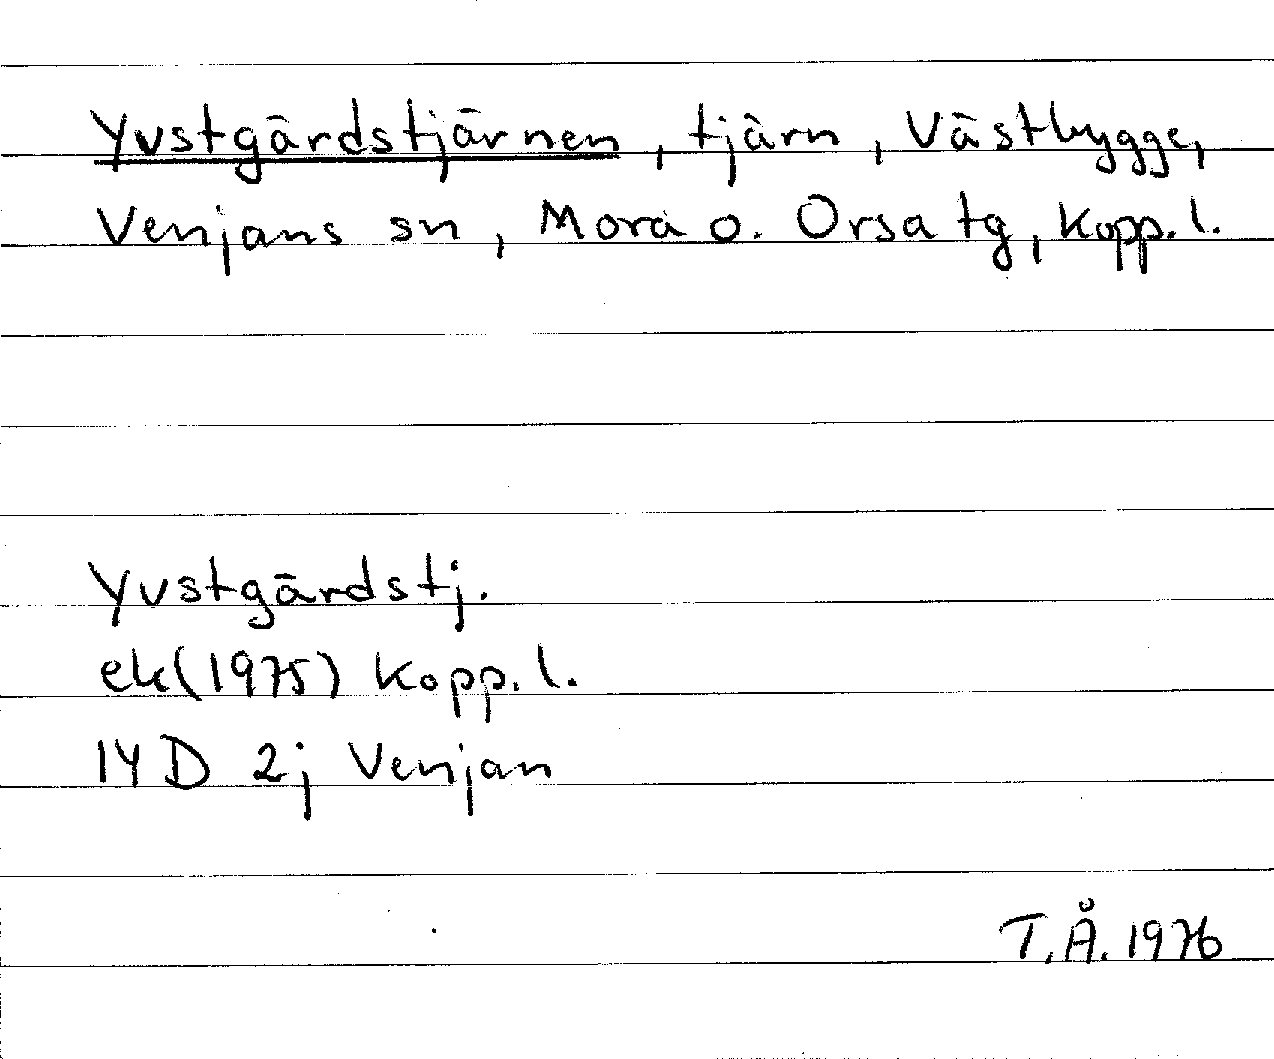 Yvstgärdstjärnen, tjärn, Västbygge,
Venjans sn, Mora o. Orsa tg, Kopp. l.
Yvstgärdstj.
ek(1975) Kopp. l.
14D 2j Venjan
T.Å. 1976